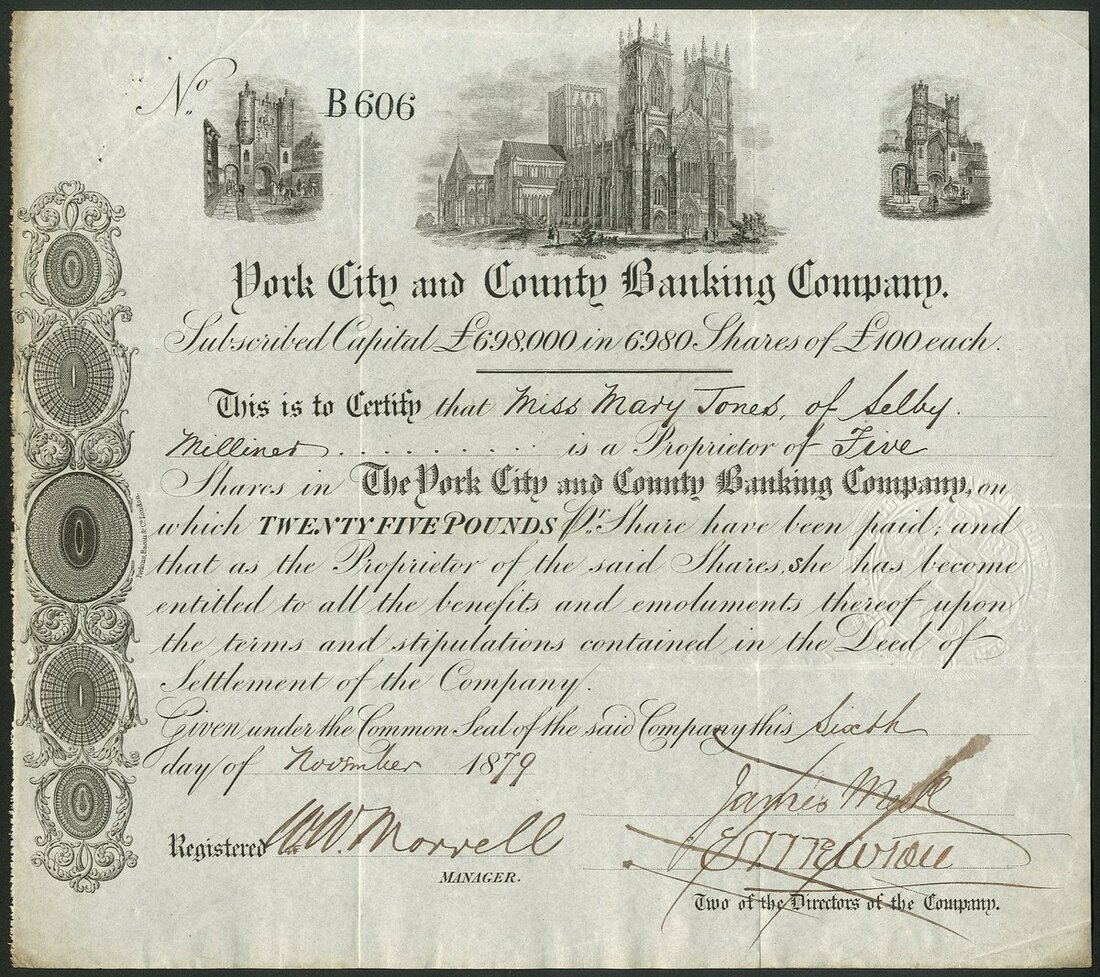 No. B606
York City and County Banking Company.
Subscribed Capital £698,000 in 6980 Shares of £100 each.
This is to Certify that Miss Mary Jones, of Selby.
Milliner . . . . . . . . . . is a Proprietor of Five
Shares in The York City and County Banking Company, on
which TWENTY FIVE POUNDS Pr. Share have been paid; and
that as the Proprietor of the said Shares, she has become
entitled to all the benefits and emoluments thereof upon
the terms and stipulations contained in the Deed of
Settlement of the Company.
Given under the Common Seal of the said Company this Sixth
day of November 1879
James Meek
Registered W.W. Morrell
MANAGER.
Two of the Directors of the Company.
Perkins, Bacon & Co. London.